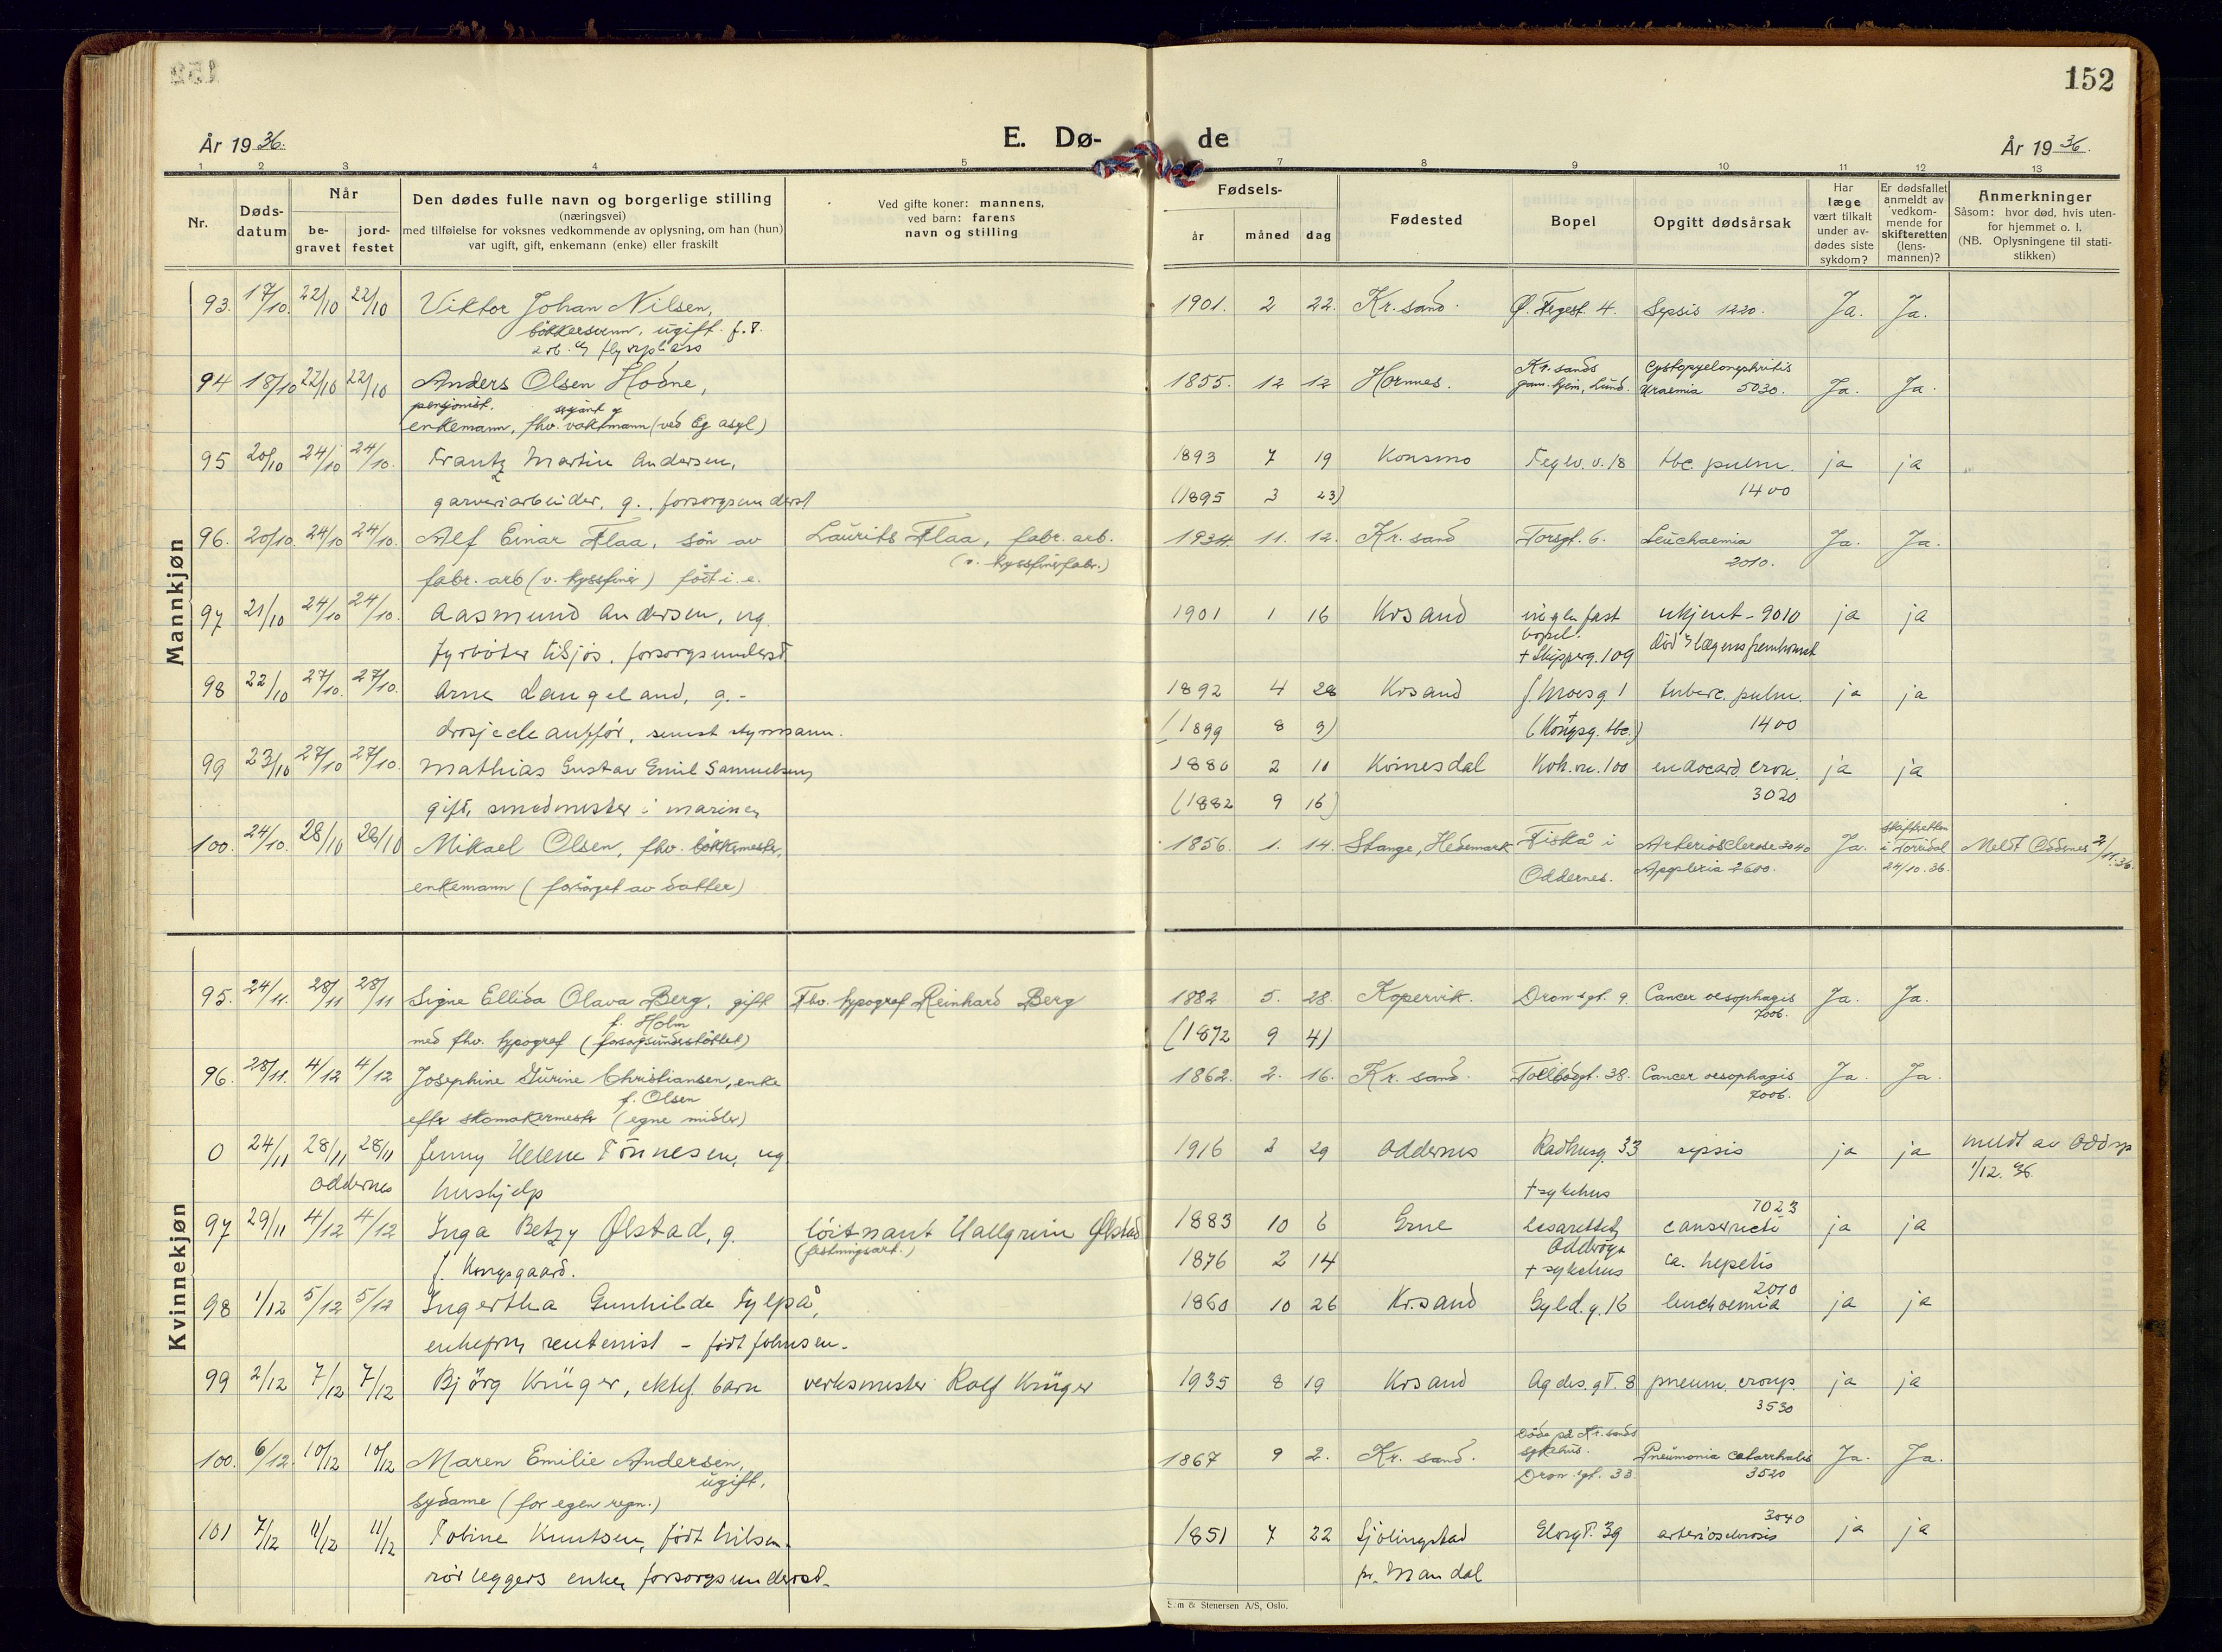 152
År 1936.
E. Dø-
de
År 1936.
1 2 3 4 5 7 8 9 10 11 12 13
Nr.
Døds-
datum
Når
be-
gravet
jord-
festet
Den dødes fulle navn og borgerlige stilling
(næringsvei)
med tilføielse for voksnes vedkommende av oplysning, om han (hun)
var ugift, gift, enkemann (enke) eller fraskilt
Ved gifte koner: mannens,
ved barn: farens
navn og stilling
Fødsels-
år
måned
dag
Fødested
Bopel
Opgitt dødsårsak
Har
læge
vært tilkalt
under av-
dødes siste
sykdom?
Er dødsfallet
anmeldt av
vedkom-
mende for
skifteretten
(lens-
mannen)?
Anmerkninger
Såsom: hvor død, hvis uten-
for hjemmet o. l.
(NB. Oplysningene til stati-
stikken)
Mannkjøn
93. 17/10. 22/10 22/10 Viktor Johan Nilsen, 1901. 2 22. Kr.sand. Ø. Tegest. 4. Sepsis 1220. Ja. Ja.
bökkersvenn, ugift. f.t.
arb. flyveplass
94 18/10 22/10 22/10 Anders Olsen Hodne, 1855. 12 12 Hornnes. Kr.sands gam. hjem, Lund. Cystopyelonephritis
Uraemia 5030. Ja. Ja.
pensjonist,
enkemann, fhv. vaktmann (ved Eg asyl)
95 20/10 24/10 24/10. Frantz Martin Andersen, 1893 7 19 Konsmo Teglv. v. 18 tbc. pulm. ja ja
garveriarbeider, g., forsorgsunderst (1895 3 23) 1400
96. 20/10. 24/10 24/10. Alf Einar Flaa, sön av Laurits Flaa, fabr. arb. 1934. 11. 12. Kr.sand Torsgt. 6. Leuchaemia Ja. Ja.
fabr. arb (v. kryssfiner) födt i. e. (v. kryssfinerfabr.) 2010.
97 21/10 24/10 24/10. Aasmund Andersen, ug. 1901 1 16 Krsand ingen fast ukjent - 9010 ja ja
fyrböter tilsjøs, forsorgsunderst. bopel.
+ Skipperg. 109 död lægens fremkomst
98 22/10 27/10. 27/10. Arne Langeland, g.- 1892 4 28 Krsand J. Moesg 1 tuberc. pulm. ja ja
drosjechauffør, senest styrmann. (1899 8 3) (Kongsg. tbc.) 1400
99 23/10 27/10 27/10. Mathias Gustav Emil Samuelsen, 1880 2 10 Kvinesdal Kok.vn. 100 endocard. cron. ja ja
gift, smedmester i marinen (1882 9 16) 3020
100. 24/10. 28/10 28/10 Mikael Olsen, fhv. bökkermester, 1856. 1. 14. Stange, Hedemark Fiskå i Arteriosclerose 3040 Ja. skifteretten
i Torridal
24/10. 36. Meldt Oddernes 2/11.36.
enkemann (forsörget av datter) Oddernes. Apoplexia 2600.
Kvinnekjøn
95. 24/11. 28/11 28/11 Signe Ellida Olava Berg, gift Fhv. typograf Reinhard Berg 1882. 5. 28. Kopervik. Dron.sgt. 9. Cancer oesophagis Ja. Ja.
f. Holm 7006.
med fhv. typograf (forsorgsunderstöttet) (1872 9 4)
96. 28/11. 4/12 4/12 Josephine Turine Christiansen, enke 1862. 2. 16. Kr. sand. Tollbodgt. 38. Cancer oesophagis Ja. Ja.
f. Olsen 7006.
efter skomakermester (egne midler)
0 24/11 28/11 28/11 Jenny Helene Tönnesen, ug. 1916 2 29 Oddernes Rådhusg. 33 sepsis ja ja meldt av Oddsp
Oddernes hushjelp + sykehus 1/12. 36.
97 29/11 4/12 4/12 Inga Betzy Ølstad, g. löitnant Hallgrim Ølstad 1883 10 6 Grue lasarettet 7023 ja ja
(festningsart.)
f. Kongsgaard. 1876 2 14 Odderöya
+ sykehus ca. hepetis
98 1/12 5/12 5/12 Ingertha Gunhilde Fylpå, 1860 10 26 Kr.sand Gyld. g. 16 2010
leuchoemia ja ja
enkefru rentenist - født Johnsen.
99 2/12 7/12 7/12 Björg Krüger, ektef. barn verksmester Rolf Krüger 1935 8 19 Krsand Agdes.gt. 8 pneum. croup. ja ja
3530
100. 6/12. 10/12 10/12 Maren Emilie Andersen, 1867 9 2. Kr. sand. Döde på Kr.sands
sykehus.
Dron.sgt. 33 Pneumonia catarrhalis Ja. Ja.
ugift, 3520
sydame (for egen regn.)
101 7/12 11/12 11/12 Tobine Knutsen, født Nilsen. 1851 7 22 Sjölingstad Elvegt. 39 3040
arteriosclerosis ja ja
rörleggers enke, forsorgsunderst. pr. Mandal
Sem & Stenersen A/S, Oslo.